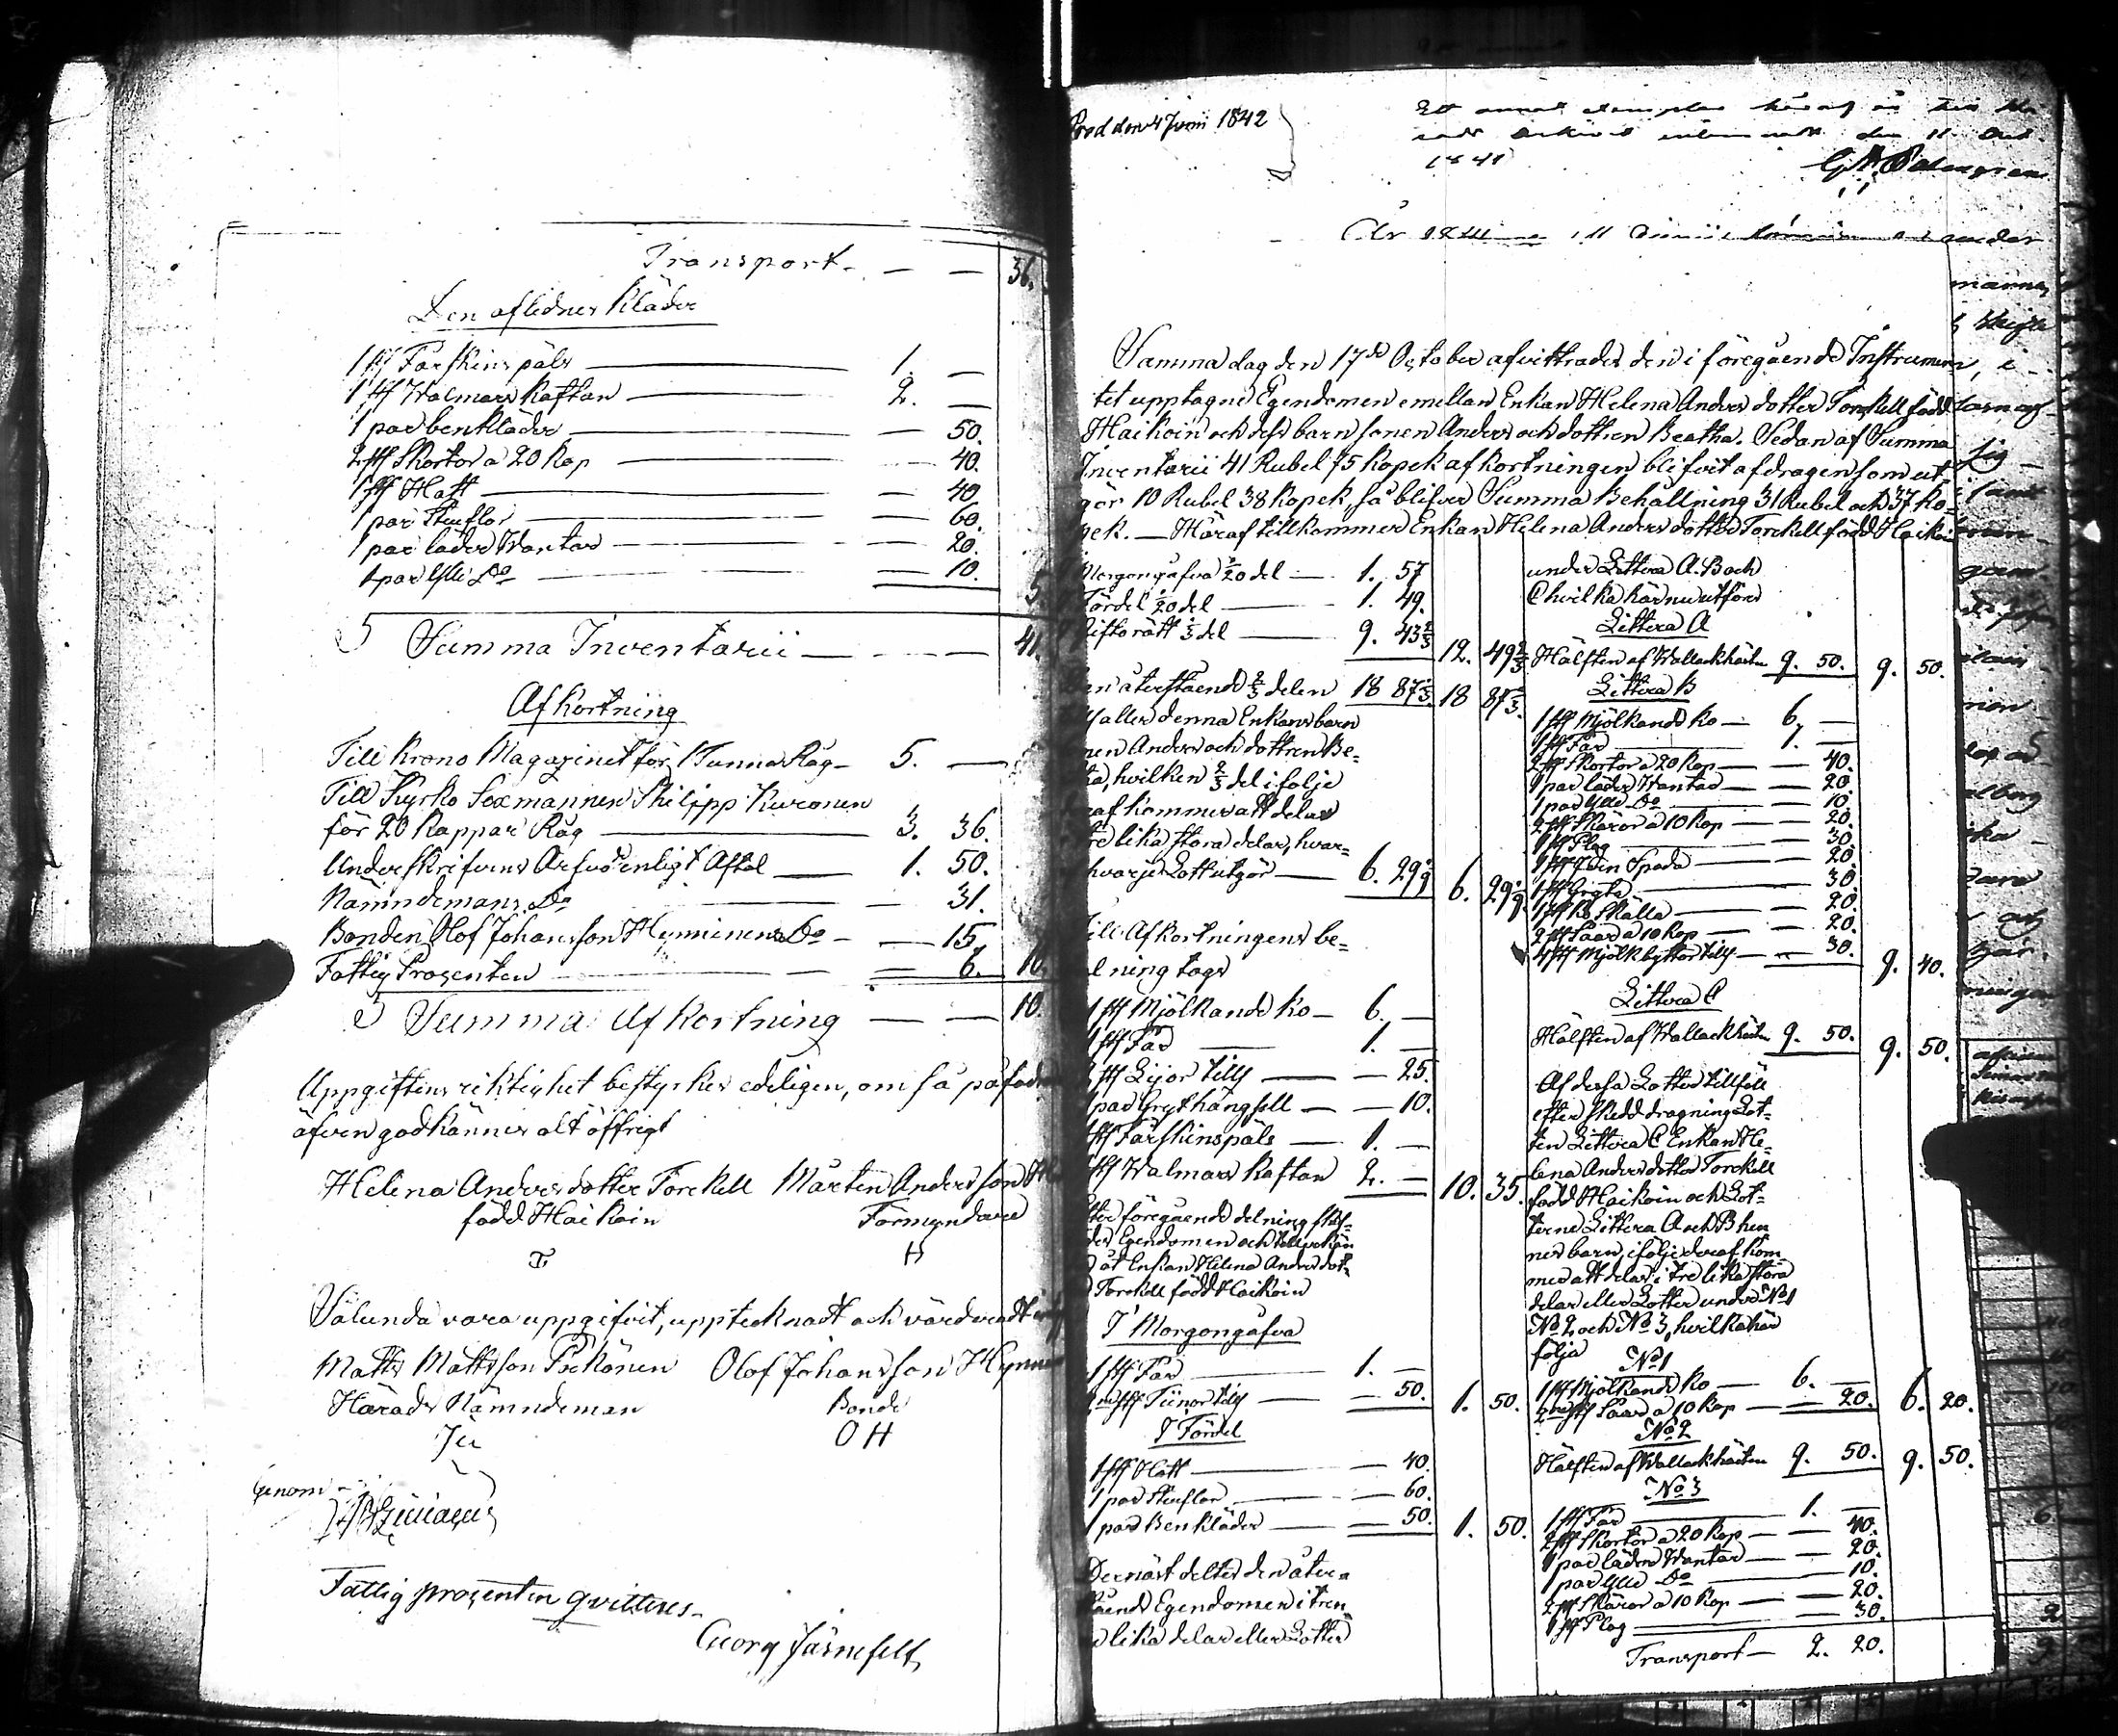 Transport — — 36.
Den aflednes Kläder
1 st Fårskins päls — 1. —
1 st Walmars Kaftan — 2. —
1 par benkläder — 50.
2 st Skortor a 20 Kop — 40.
1 st Hatt — 40.
1 par Stuflor — 60.
1 par läder Wantar — 20.
1 par Ylle Do — 10. 5
Summa Inventarii — — — 41.
Afkortning
Till Krono Magazinet för 1 Tunna Råg — 5. —
Till Kyrko Sexmannen Philipp Kuronen
för 20 Kappar Råg — 3. 36.
Underskrifvens Arfvode enligt Aftal — 1. 50.
Nämndemans Do — 31.
Bonden Olof Johansson Hynninens Do — 15.
Fattig Procenten — 6. 10.
Summa Afkortning — — 10.
Uppgiftens riktighet bestyrkes edeligen, om så påfodras
äfven godkännes alt öffrigt
Helena Andersdotter Torckell Mårten Andersson
född Haikoin Förmyndare
T H
Sålunda vara uppgifvit, upptecknadt och värderadt
Matts Mattsson Pekönen Olof Johansson Hynninen
Härads Nämndeman Bonde
OH
Genom
Fattig procenten qvitteres
Georg Järnefelt
Prod den 4 Juni 1842
Ett annat exemplar häraf är
den 11 Oct.
1841
År 1841
Samma dag den 17de October afvittrades den i föregående Instrumen
tet upptagne Egendomen emellan Enkan Helena Anders dotter Torckell född
Haikoin och dess barn sonen Anders och dottren Beatha. Sedan af Summa
Inventarii 41 Rubel 75 Kopek afkortningen blifvit afdragen som ut
gör 10 Rubel 38 Kopek, så blifver Summa Behållning 31 Rubel och 37 Ko
pek. — Häraf tillkommer Enkan Helena Anders dotter Torckell född Haikoin
Morgongåfva 1/20 del — 1. 57
Fördel 1/20 del — 1. 49.
Giftorätt 1/3 del — 9. 43 2/3 12. 49 2/3
återstående 2/3 delen 18 87 1/3. 18 87 1/3.
faller denna Enkans barn
Anders och dottren Be=
hvilken 2/3 del i följe
af kommer att delas
lika stora delar, hvar=
hvarje Lott utgör — 6. 29 1/9 6. 29 1/9
Till Afkortningens be=
ning tags
1 st Mjölkande Ko — 6. —
1 st Får — 1. —
st Lijor tills — 25.
1 par Gryt hängsell — 10.
1 st Fårskinspäls — 1. —
1 st Walmars Kaftan 2. — 10. 35.
föregående delning
Egendomen och
åt Enkan Helena Andersdot=
Torckell född Haikoin
I Morgongåfva
1 st Får — 1. —
st Tiinor tills — 50. 1. 50.
I Fördel
1 st Hatt — 40.
1 par Stuflor — 60.
1 par Benkläder — 50. 1. 50.
Dernäst deltes den åter=
stående Egendomen i tren
lika delar eller Lotter
under Littera A. B och
C hvilka här nu utföres
Littera A
Hälften af Wallackhästen 9. 50. 9. 50.
Littera B
1 st Mjölkande Ko — 6. —
1 st Får — 1. —
2 st Skortor a 20 Kop — 40.
1 par läder Wantar — 20.
1 par Ylle Do — 10.
2 st Skäror a 10 Kop — 20.
1 st Plog — 30.
1 st Jern Spada — 20.
1 st Gryta — 30
1 st Ko Skälla — 20.
2 st Saar a 10 Kop — 20.
4 st Mjölkbyttor tills — 30. 9. 40.
Littera C
Hälften af Wallackhästen 9. 50. 9. 50.
Af dessa Lotter tillföll
efter skedd dragning Lot=
ten Littera C Enkan He=
lena Andersdotter Torckell
född Haikoin och Lot=
terne Littera A och B hen
nes barn, i följe deraf kom
mer att delas i tre lika stora
delar eller Lotter under No 1
No 2 och No 3, hvilka här
följa
No 1
1 st Mjölkande Ko — 6. —
2 st Saar a 10 Kop — 20. 6. 20.
No 2
Hälften af Wallackhästen 9. 50. 9. 50.
No 3
1 st Får — 1. —
2 st Skortor a 20 Kop — 40.
1 par läder Wantar — 20.
1 par Ylle Do — 10.
2 st Skäror a 10 Kop — 20.
1 st Plog — 30.
Transport — 2. 20.